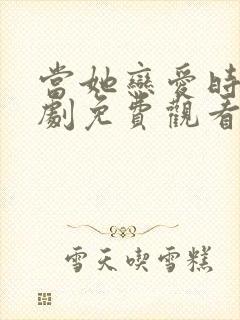 當她戀愛時
劇免費觀看
雪天喫雪糕